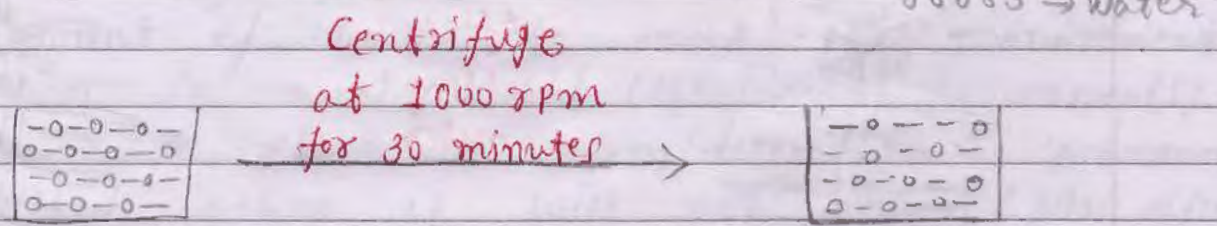 ooooo → Water
Centrifuge
at 1000 rpm
for 30 minutes